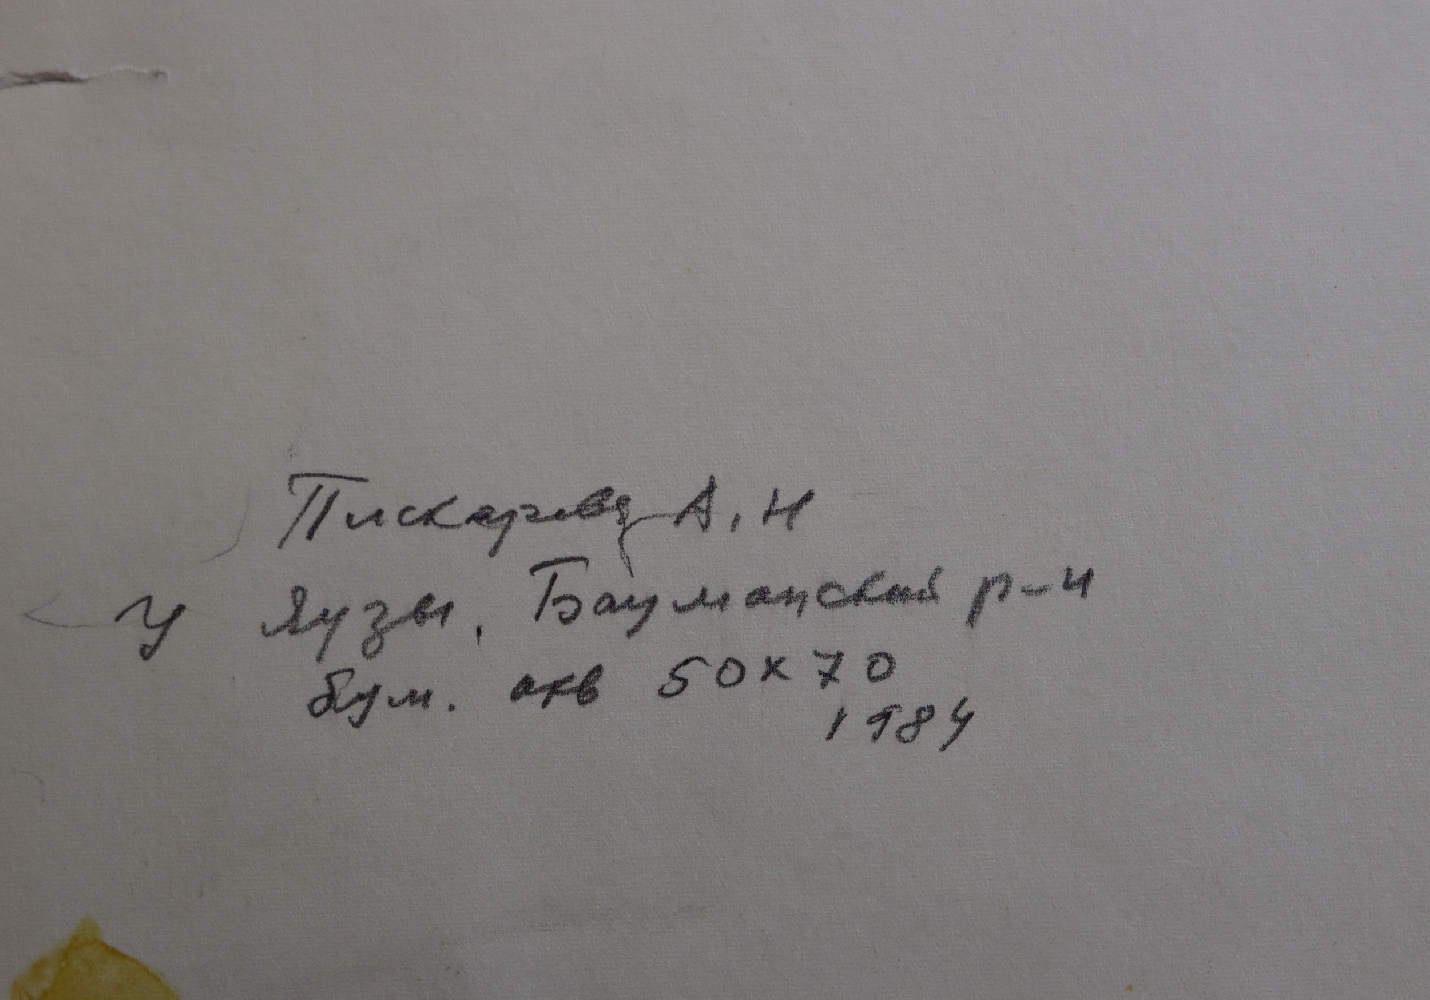 Пискарева А.Н
У Яузы, Бауманский р-н
бум. акв 50х70
1984